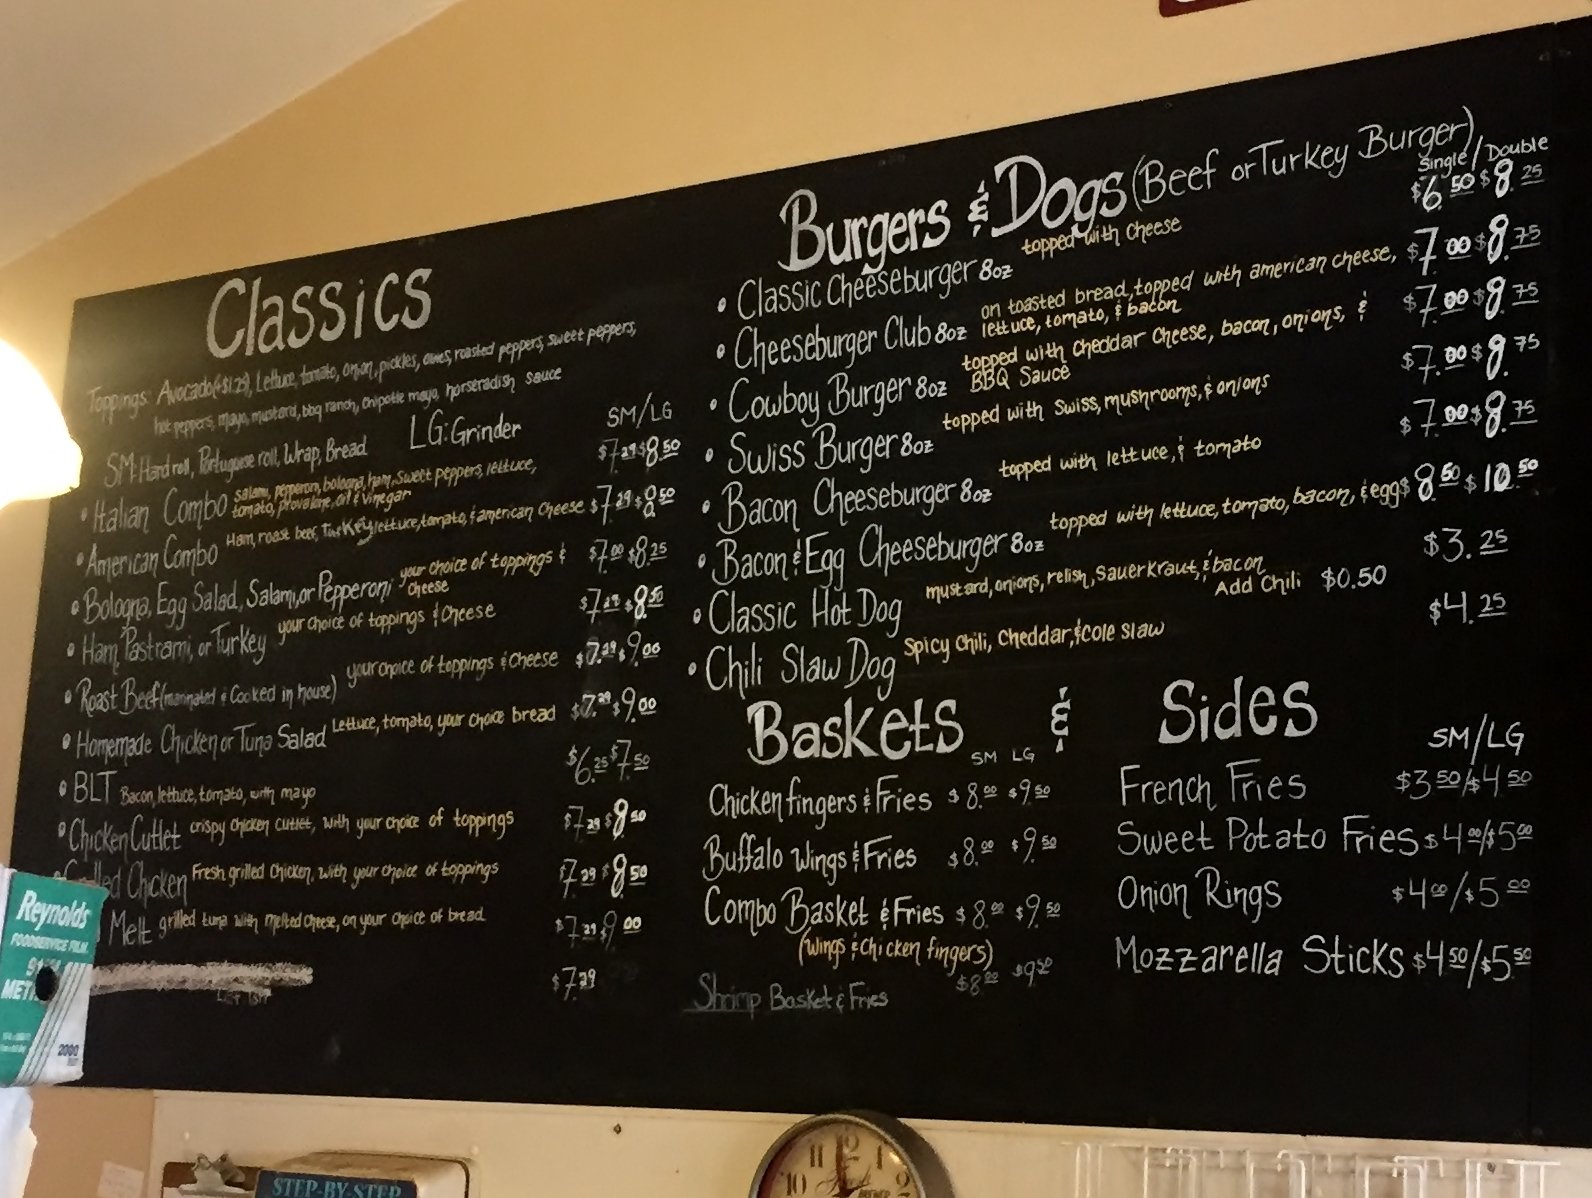 Classics
Toppings: Avocado(+$1.29), Lettuce, tomato, onion, pickles, olives, roasted peppers, sweet peppers,
hot peppers, mayo, mustard, bbq ranch, chipotle mayo, horseradish sauce
SM: Hard roll, Portuguese roll, Wrap, Bread LG: Grinder SM/LG
• Italian Combo salami, pepperoni, bologna, ham, Sweet peppers, lettuce, $7.29 $8.50
tomato, provolone, oil & vinegar
• American Combo Ham, roast beef, Turkey, lettuce, tomato, & american cheese $7.29 $8.50
• Bologna, Egg Salad, Salami, or Pepperoni your choice of toppings & $7.00 $8.25
cheese
• Ham, Pastrami, or Turkey your choice of toppings & cheese $7.29 $8.50
• Roast Beef (marinated & cooked in house) your choice of toppings & cheese $7.29 $9.00
• Homemade Chicken or Tuna Salad Lettuce, tomato, your choice bread $7.29 $9.00
• BLT Bacon, lettuce, tomato, with mayo $6.25 $7.50
• Chicken Cutlet crispy chicken cutlet, with your choice of toppings $7.29 $8.50
Chicken Fresh grilled chicken, with your choice of toppings $7.29 $8.50
Melt grilled tuna with melted cheese, on your choice of bread $7.29 $9.00
$7.29
Burgers & Dogs (Beef or Turkey Burger)
Single/Double
• Classic Cheeseburger 8oz topped with cheese $6.50 $8.25
• Cheeseburger Club 8oz on toasted bread, topped with american cheese, $7.00 $8.75
lettuce, tomato, & bacon
• Cowboy Burger 8oz topped with Cheddar Cheese, bacon, onions, & $7.00 $8.75
BBQ Sauce
• Swiss Burger 8oz topped with Swiss, mushrooms, & onions $7.00 $8.75
• Bacon Cheeseburger 8oz topped with lettuce, & tomato $7.00 $8.75
• Bacon & Egg Cheeseburger 8oz topped with lettuce, tomato, bacon, & egg $8.50 $10.50
• Classic Hot Dog mustard, onions, relish, sauerkraut, & bacon $3.25
Add Chili $0.50
• Chili Slaw Dog Spicy Chili, Cheddar, & Cole slaw $4.25
Baskets & Sides
SM LG
Chicken fingers & Fries $8.00 $9.50
Buffalo Wings & Fries $8.00 $9.50
Combo Basket & Fries $8.00 $9.50
(wings & chicken fingers)
Shrimp Basket & Fries $8.00 $9.50
SM/LG
French Fries $3.50/$4.50
Sweet Potato Fries $4.00/$5.00
Onion Rings $4.00/$5.00
Mozzarella Sticks $4.50/$5.50
Reynolds
FOODSERVICE FILM
2000
STEP-BY-STEP
11 12 1
10 2